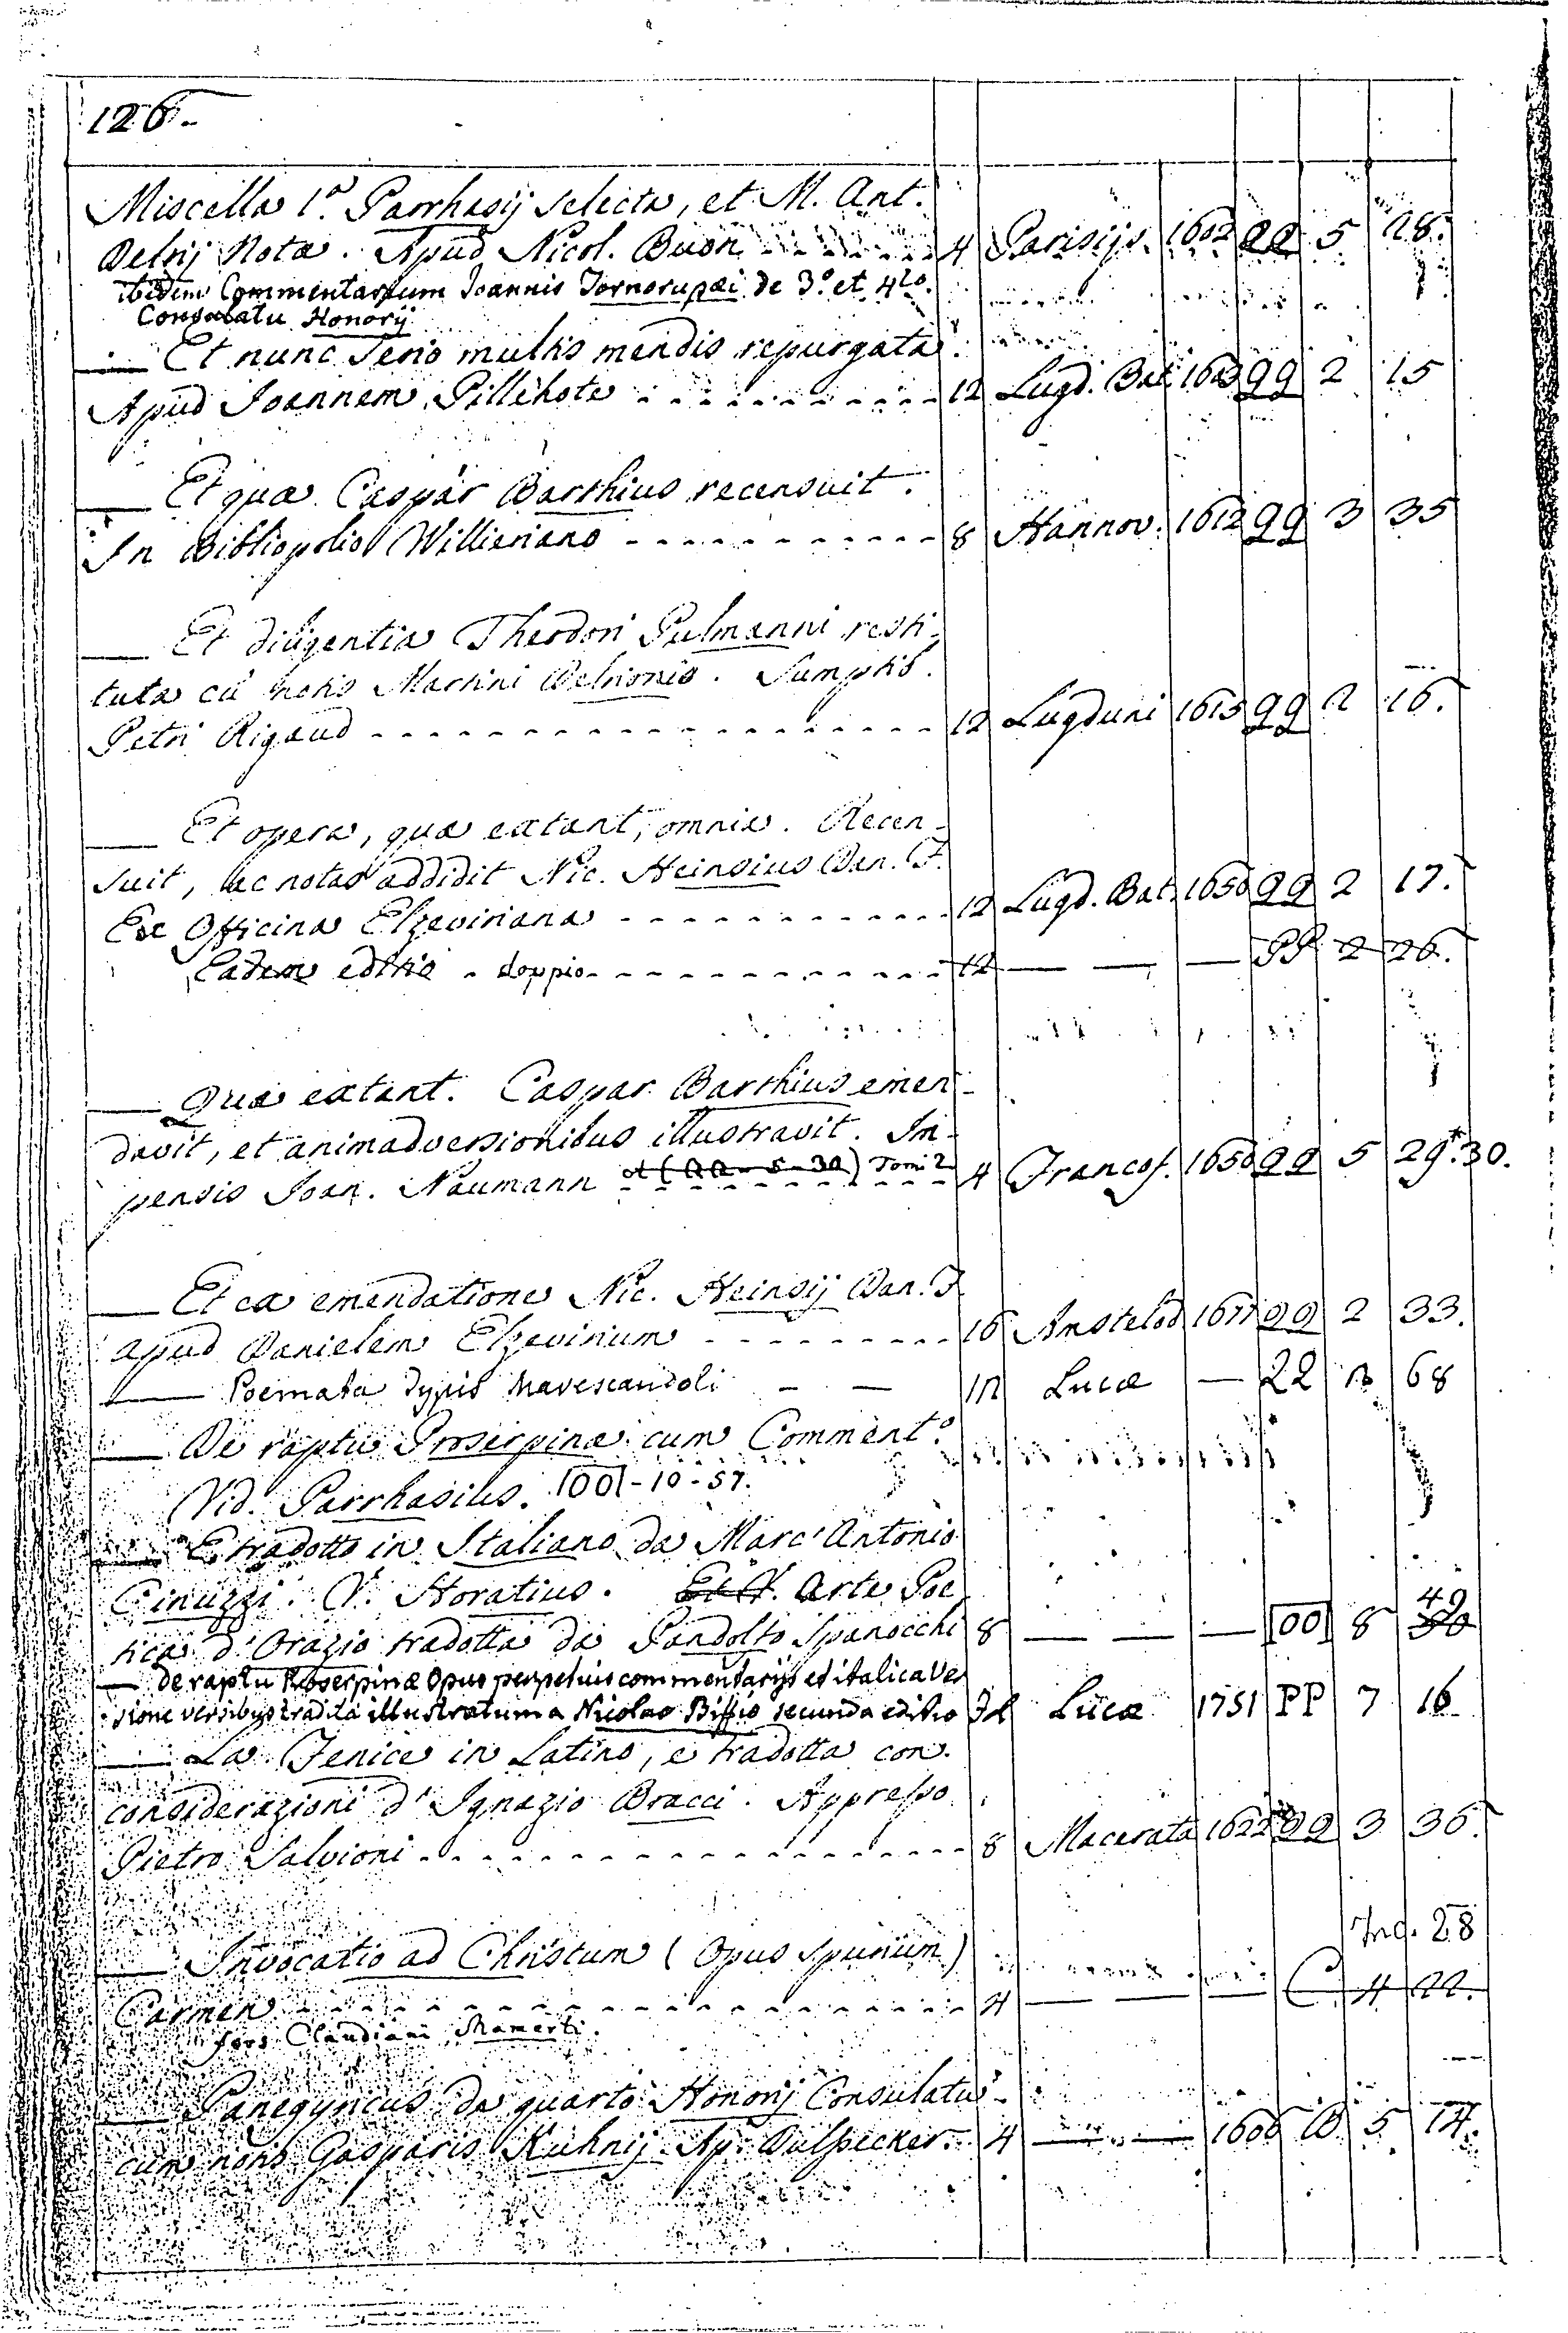 126.
Miscella I.ª Parrhasij selecta, et M. Ant.
Delrij Notæ. Apud Nicol. Buon 4 Parisijs. 1602 QQ 5 28.
ibidem Commentarium Joannis Tornorupæi de 3.º et 4to.
Consulatu Honorij
— Et nunc serio multis mendis repurgata.
Apud Joannem Pillehote 12 Lugd. Bat. 1603 QQ 2 15
— Et quæ Caspar Barthius recensuit.
In Bibliopolio Willieriano 8 Hannov. 1612 QQ 3 35
— Et diligentia Theodori Pulmanni resti-
tuta cũ notis Martini Delrionis. Sumptib.
Petri Rigaud 12 Lugduni 1615 QQ 2 16.
— Et opera, quæ extant, omnia. Recen-
suit, ac notas addidit Nic. Heinsius Dan. F.
Ex Officina Elzeviriana 12 Lugd. Bat. 1650 QQ 2 17.
Eadem editio - doppio 12 — — — PP 2 26.
— Quæ extant. Caspar Barthius emen-
davit, et animadversionibus illustravit. Im-
pensis Joan. Naumann et (QQ - 5 - 30) Tomi 2 4 Francof. 1650 QQ 5 29.*30.
— Et ex emendatione Nic. Heinsij Dan. F.
apud Danielem Elzevirium 16 Amstelod 1677 QQ 2 33.
— Poemata Typis Mavescandoli — — 12 Lucæ — 22 68
— De raptu Proserpinæ cum Comment.º
Vid. Parrhasius. OO - 10 - 57.
— E tradotto in Italiano da Marc' Antonio
Cinuzzi. V. Horatius. Et V. Arte Poe
tica d'Orazio tradotta da Pandolfo Spanocchi 8 — — — OO 8 49 30
— De raptu Proserpinæ Opus perpetuis commentarijs et italica Ver
sione versibus tradita illustratum a Nicolao Biffio secunda editio Lucæ 1751 PP 7 16
— La Fenice in Latino, e tradotta con
considerazioni d'Ignazio Bracci. Appresso
Pietro Salvioni 8 Macerata 1622 QQ 3 36.
Inq. 28
— Invocatio ad Christum (Opus spurium)
Carmen 4 — — — C. 4 22.
fors Claudiani Mamerti.
— Panegyricus de quarto Honorij Consulatu
cum notis Gasparis Kuhnij. Ap. Dulssecker. 4 — — D 5 14.